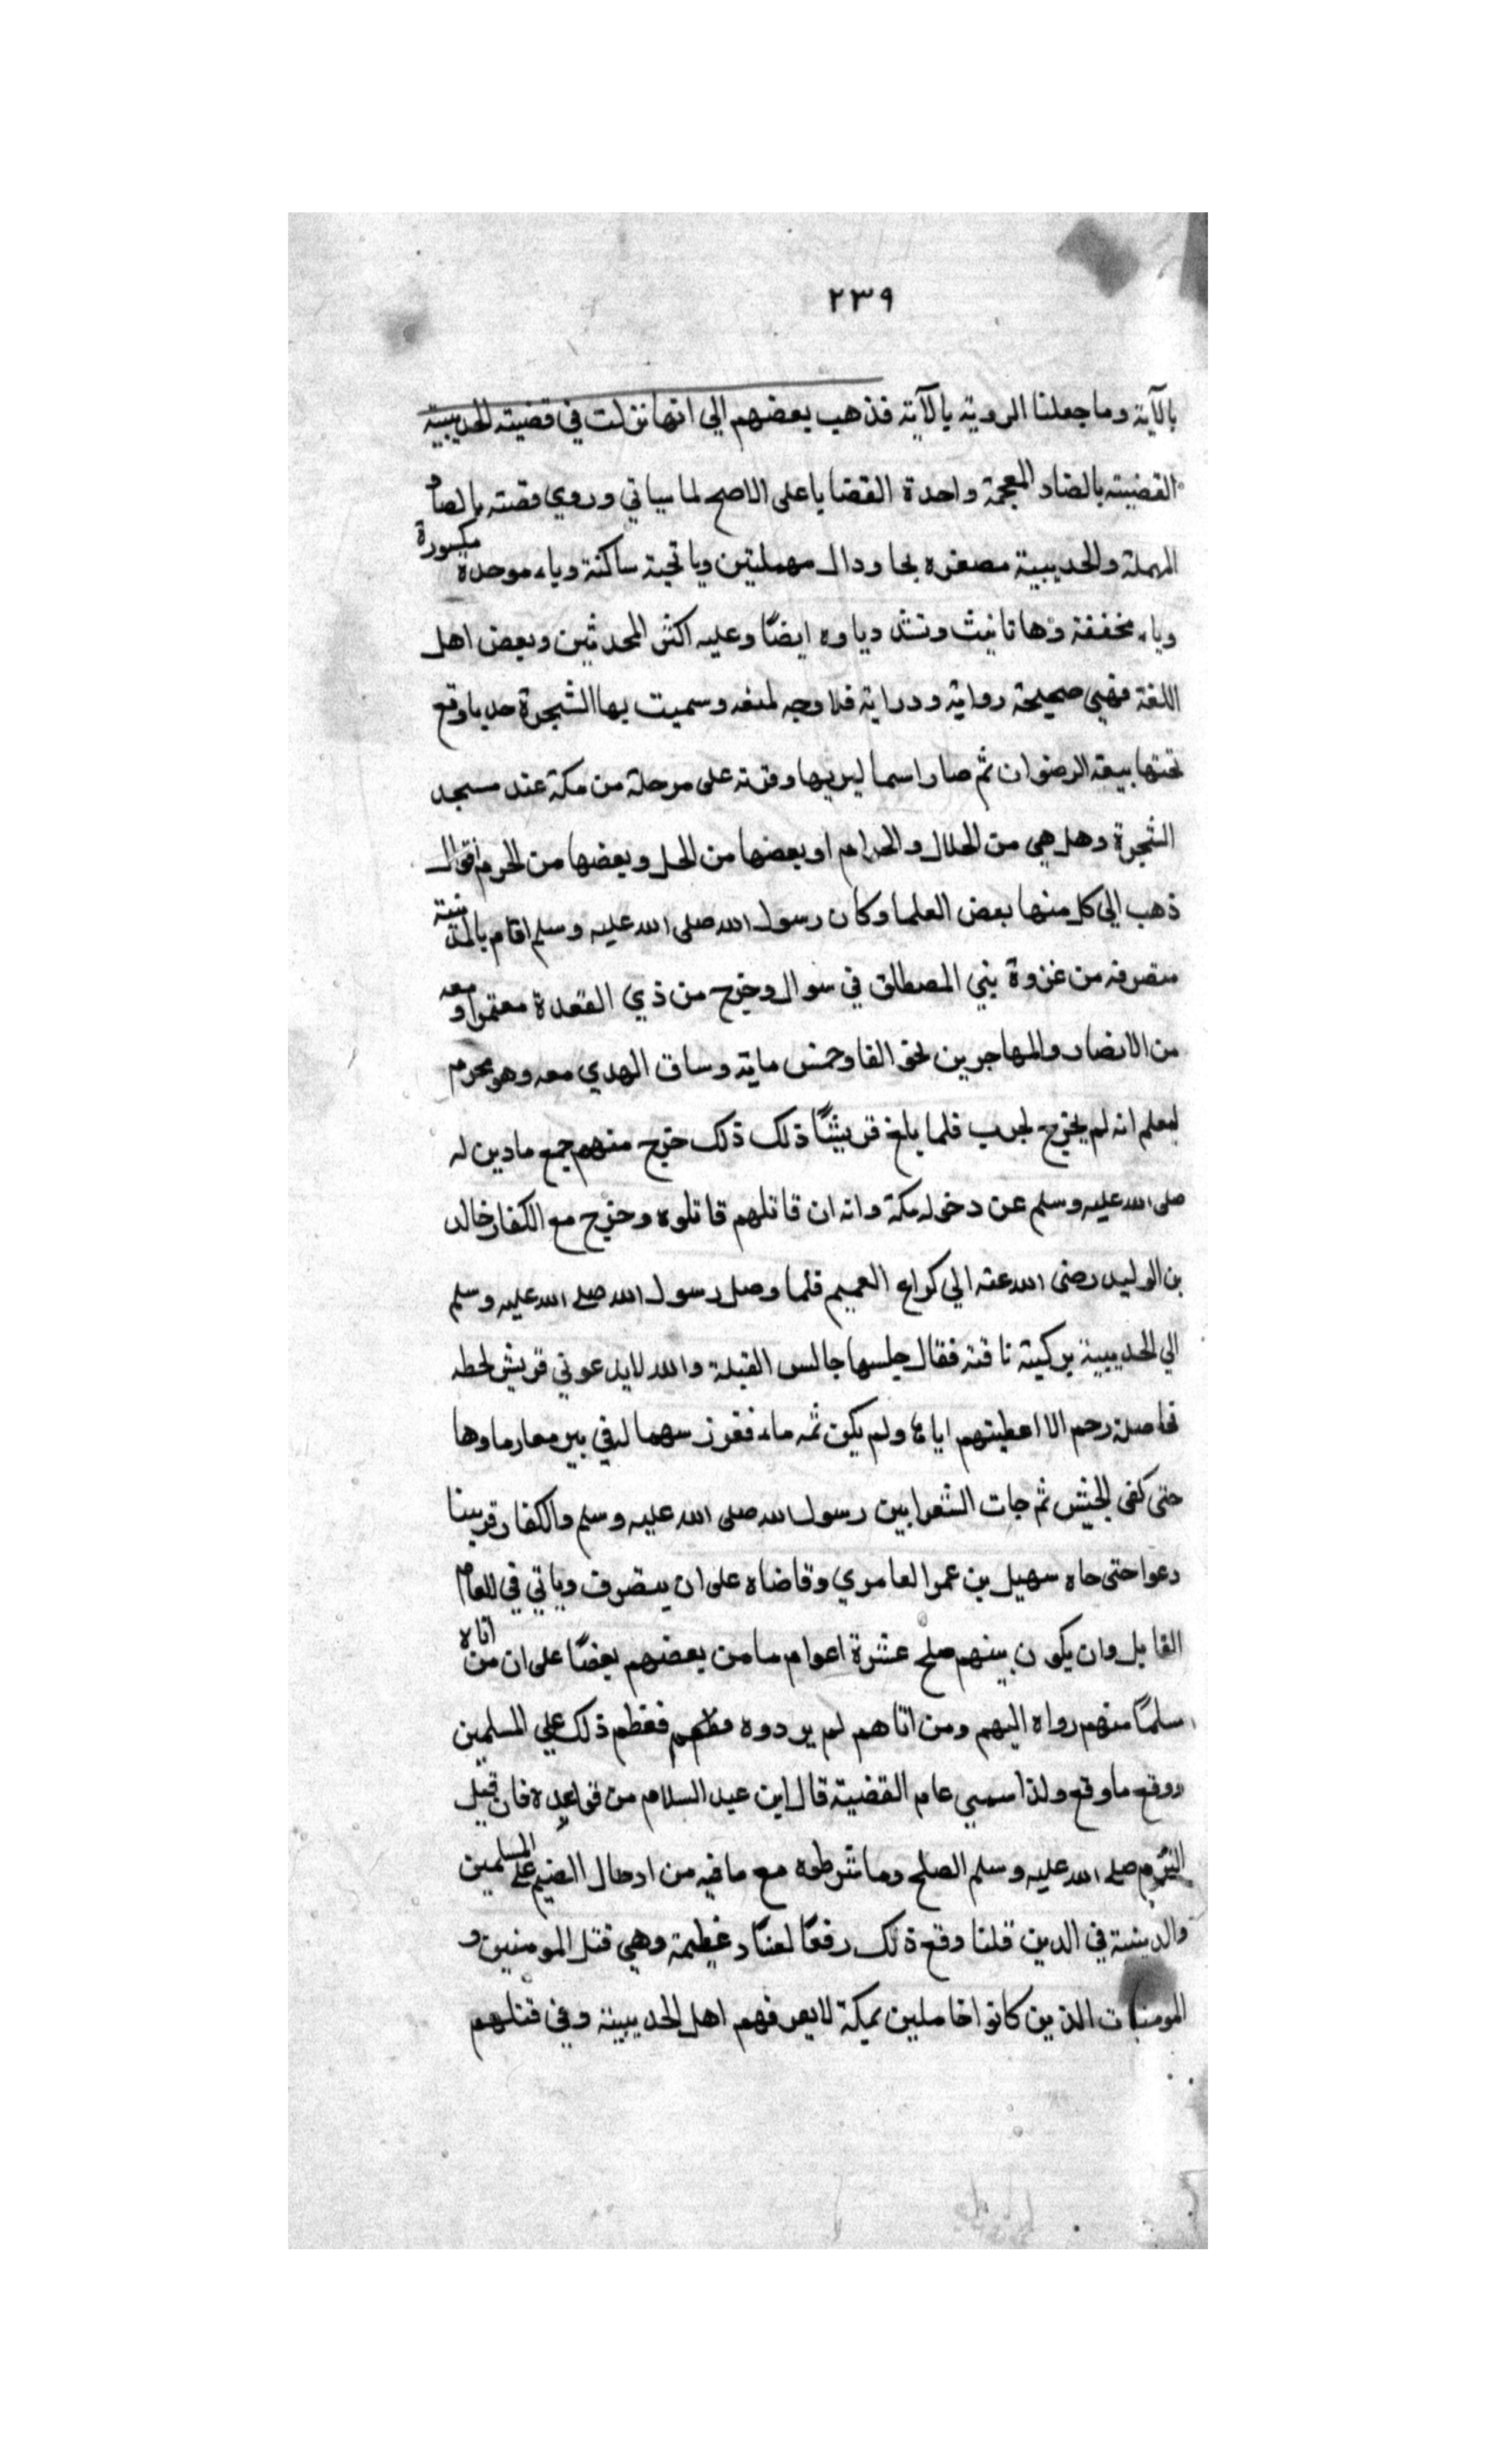 ٢٣٩
بالآية وما جعلنا الروية بالآية فذهب بعضهم الي انها نزلت في قضية الحديبية
القضية بالضاد المعجمة واحدة القضايا على الاصح لما سياتي وروي قصته بالصاد
المهملة والحديبية مصغره بحا ودال مهملتين ويا تحتية ساكنة وباء موحدة مكسورة
وياء مخففة وها تانيث وتشد دياوه ايضًا وعليه اكثر المحدثين وبعض اهل
اللغة فهي صحيحة رواية ودراية فلا وجه لمنعه وسميت بها الشجرة حدباوقع
تحتها بيعة الرضوان ثم صار اسما لبربها وقرية على مرحلة من مكة عند مسجد
الشجرة وهل هي من الحلال والحرام او بعضها من الحل وبعضها من الحرم اقوال
ذهب الي كل منها بعض العلما وكان رسول الله صلى الله عليه وسلم اقام بالمدينة
منصرفه من غزوة بني المصطلق في سوال وخرج من ذي القعدة معتمرا ومعه
من الانصار والمهاجرين نحو الفا وخمس ماية وساق الهدي معه وهو محرم
ليعلم انه لم يخرج لحرب فلما بلغ قريشًا ذلك ذلك خرج منهم جمع مادين له
صلى الله عليه وسلم عن دخوله مكة وانه ان قاتلهم قاتلوه وخرج مع الكفار خالد
بن الوليد رضى الله عنه الي كراع الغميم فلما وصل رسول الله صلى الله عليه وسلم
الي الحديبية بركيته ناقته فقال جلسها جالس القبلة والله لايدعوني قريش لحطه
فاصلة رحم الا اعطيتهم اياها ولم يكن ثمه ماء فغرز سهما له في بير معارماوها
حتى كفى الجيش ثم جات الشعرا بين رسول الله صلى الله عليه وسلم والكفار قريبنا
دعوا حتى جاه سهيل بن عمر العامري وقاضاه على ان ينصرف وياتي في العام
القابل وان يكون بينهم صلح عشرة اعوام مامن بعضهم بعضًا على ان من اتاه
سلمًا منهم رواه اليهم ومن اتاهم لم يردوه فعظم ذلك علي المسلمين
ووقع ماوقع ولذا سمي عام القضية قال ابن عبد السلام من قواعده فان قيل
التزم صلى الله عليه وسلم الصلح وما شرطوه مع مافيه من ادخال الضيم على المسلمين
والدينية في الدين قلنا وقع ذلك رفعًا لعنًا د غطيمة وهي قتل المومنين و
المومنات الذين كانوا خاملين بمكة لا يعرفهم اهل الحديبية وفي قتلهم